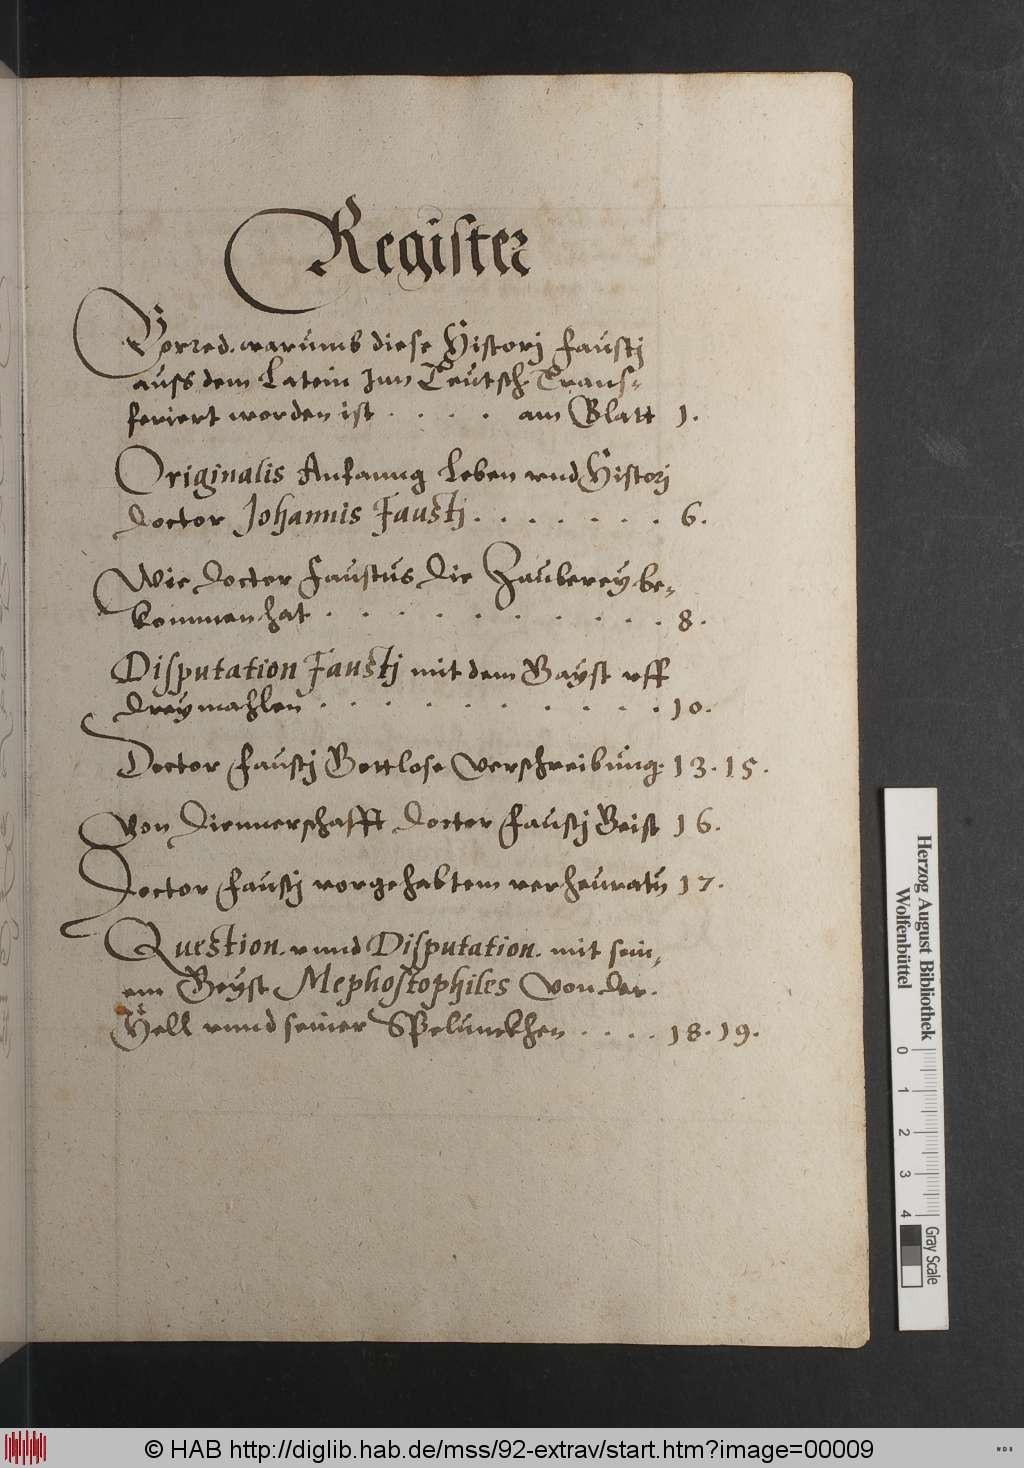 Register
Vorred. warumb diese Historj Faustj
auss dem Latein Inn Teutsch Trans-
feriert worden ist . . . . am Blatt 1.
Originalis Anfanng Leben vnd Historj
doctor Johannis Faustj . . . . . . . 6.
Wie doctor Faustus die Zauberey be-
kommen hat . . . . . . . . . . 8.
Disputation Faustj mit dem Gayst vff
dreymahlen . . . . . . . . . . 10.
Doctor Faustj Gottlose Verschreibung. 13. 15.
Von diennerschafft doctor Faustj Geist 16.
Doctor Faustj vorgehabtem verheuratn 17.
Question. vnnd Disputation. mit sein-
em Geyst Mephostophiles Von der.
Hell vnnd seiner Spelunckhen . . . . 18. 19.
Herzog August Bibliothek
Wolfenbüttel
0 1 2 3 4
Gray Scale
© HAB http://diglib.hab.de/mss/92-extrav/start.htm?image=00009